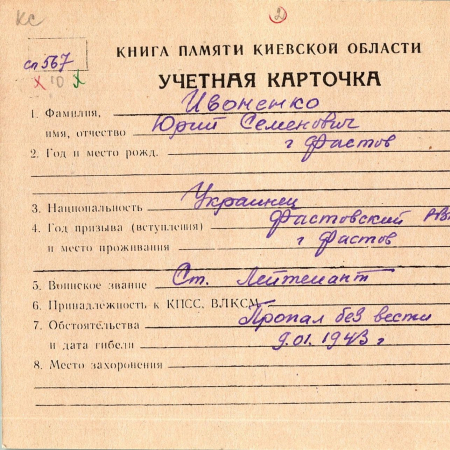 КС
2
сп567
КНИГА ПАМЯТИ КИЕВСКОЙ ОБЛАСТИ
УЧЕТНАЯ КАРТОЧКА
1. Фамилия, Ивоненко
имя, отчество Юрий Семенович
2. Год и место рожд. г Фастов
3. Национальность Украинец
4. Год призыва (вступления) Фастовский РВ
и место проживания г Фастов
5. Воинское звание Ст. Лейтенант
6. Принадлежность к КПСС, ВЛКСМ
7. Обстоятельства Пропал без вести
и дата гибели 9.01.1943 г
8. Место захоронения